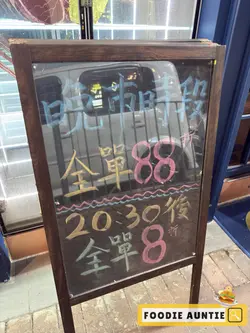 晚市時段
全單88折
20:30後
全單8折
FOODIE AUNTIE